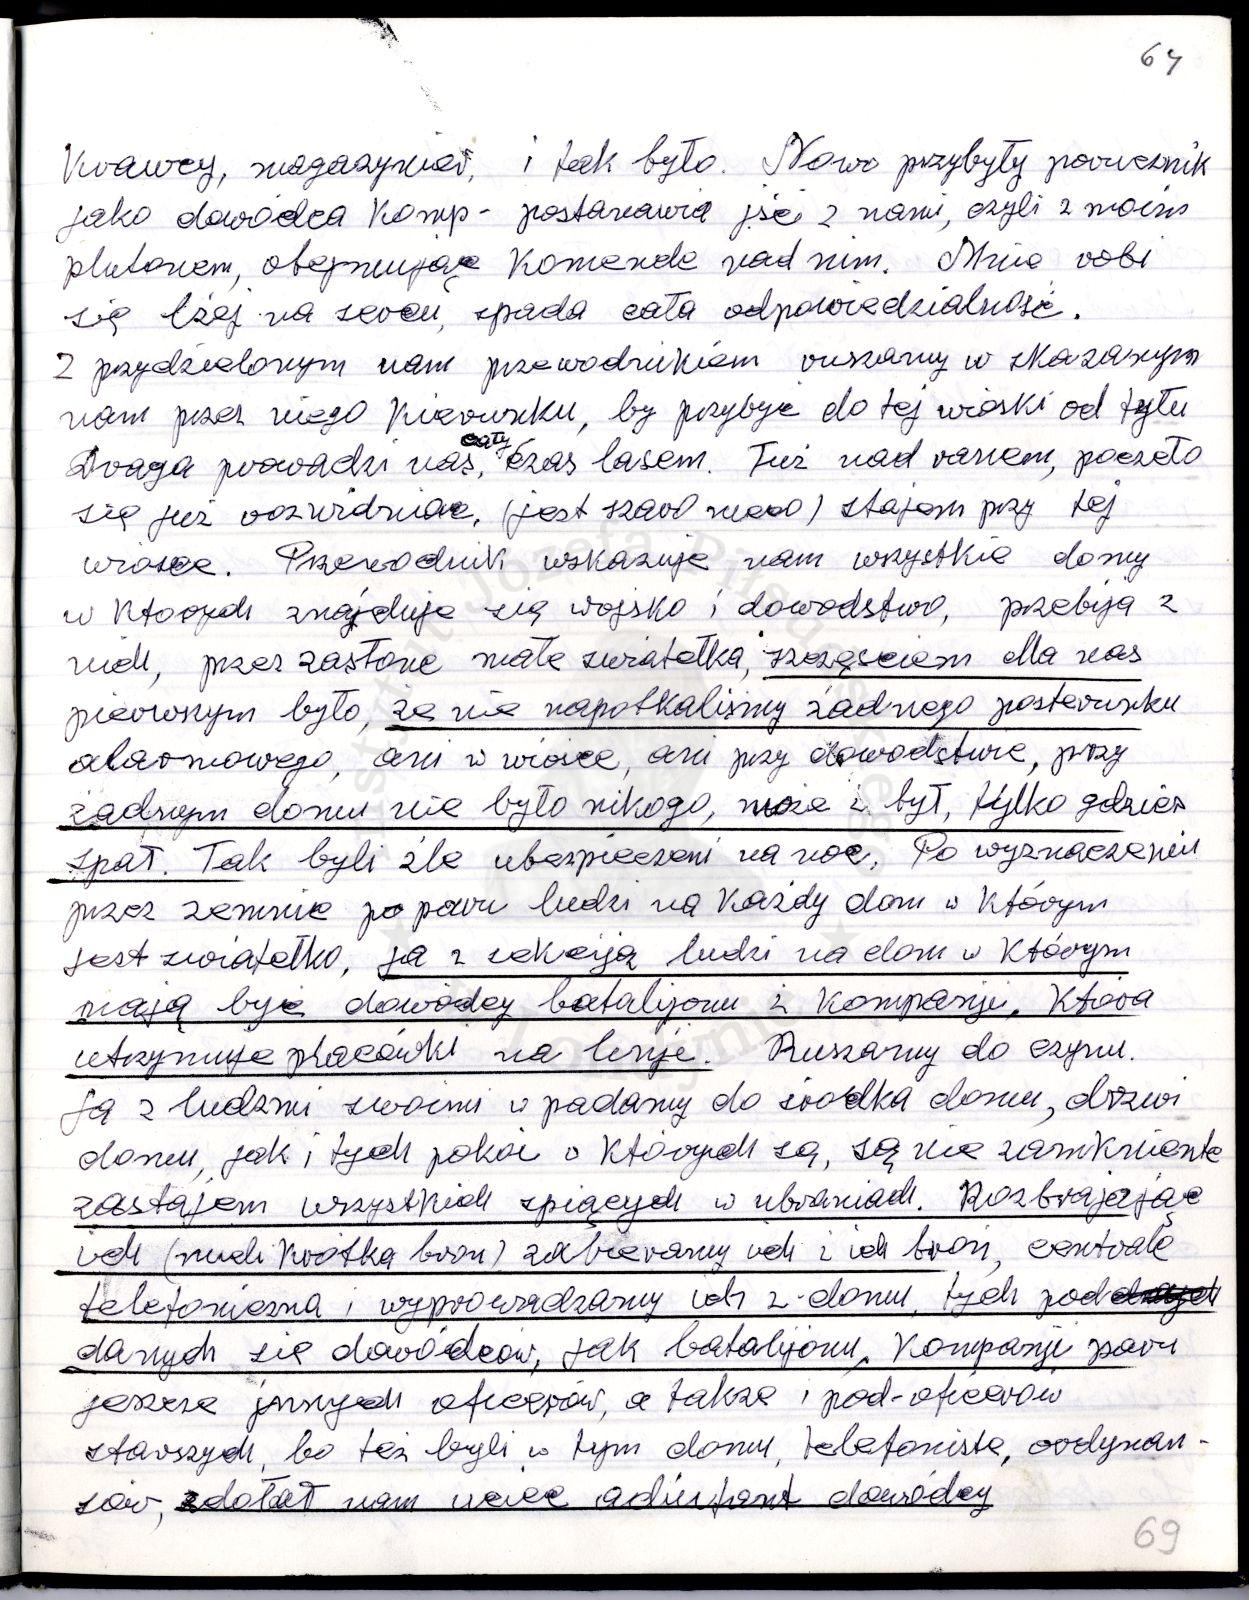 67
Krawcy, magazynier, i tak było. Nowo przybyły porucznik
jako dowódca Komp- postanawia jść z nami, czyli z moim
plutonem, obejmując Komende nad nim. Mnie robi
się lżej na sercu, spada cała odpowiedzialność.
Z przydzielonym nam przewodnikiem ruszamy w skazanym
nam przez niego Kierunku, by przybyć do tej wioski od tyłu
Droga prowadzi nas, cały czas lasem. Już nad ranem, poczęło
się już rozwidniać, (jest szaro mero) stajem przy tej
wiosce. Przewodnik wskazuje nam wszystkie domy
w Których znajduje się wojsko i dowodstwo, przebija z
nich, przez zasłone małe swiatełka, szczęściem dla nas
pierwszym było, że nie napotkaliśmy żadnego posterunku
alarmowego, ani w wiosce, ani przy dowodstwie, przy
żadnym domu nie było nikogo, może i był, tylko gdzieś
spał. Tak byli źle ubezpieczeni na noc. Po wyznaczeniu
przez zemnie po paru ludzi na Każdy dom w Którym
jest swiatełko, ja z sekcają ludzi na dom w Którym
mają być dowódcy batalijonu i Kompanji, Która
utrzymuje placówki na linje. Ruszamy do czynu.
Ja z ludzmi swoimi w padamy do środka domu, drzwi
domu, jak i tych pokoi w Których są, są nie zamkniente
zastajem wszystkich spiących w ubraniach. Rozbrajając
ich (mieli Krótką broń) zabieramy ich i ich broń, centralę
telefoniczna i wyprowadzamy ich z domu, tych pod
danych się dowódców, jak batalijonu, Kompanji paru
jeszcze jnnych oficerów, a także i pod-oficerów
starszych, bo też byli w tym domu, telefoniste, ordynan-
sów, zdołał nam uciec adiutant dowódcy
69
Instytut Józefa Piłsudskiego
Londynie